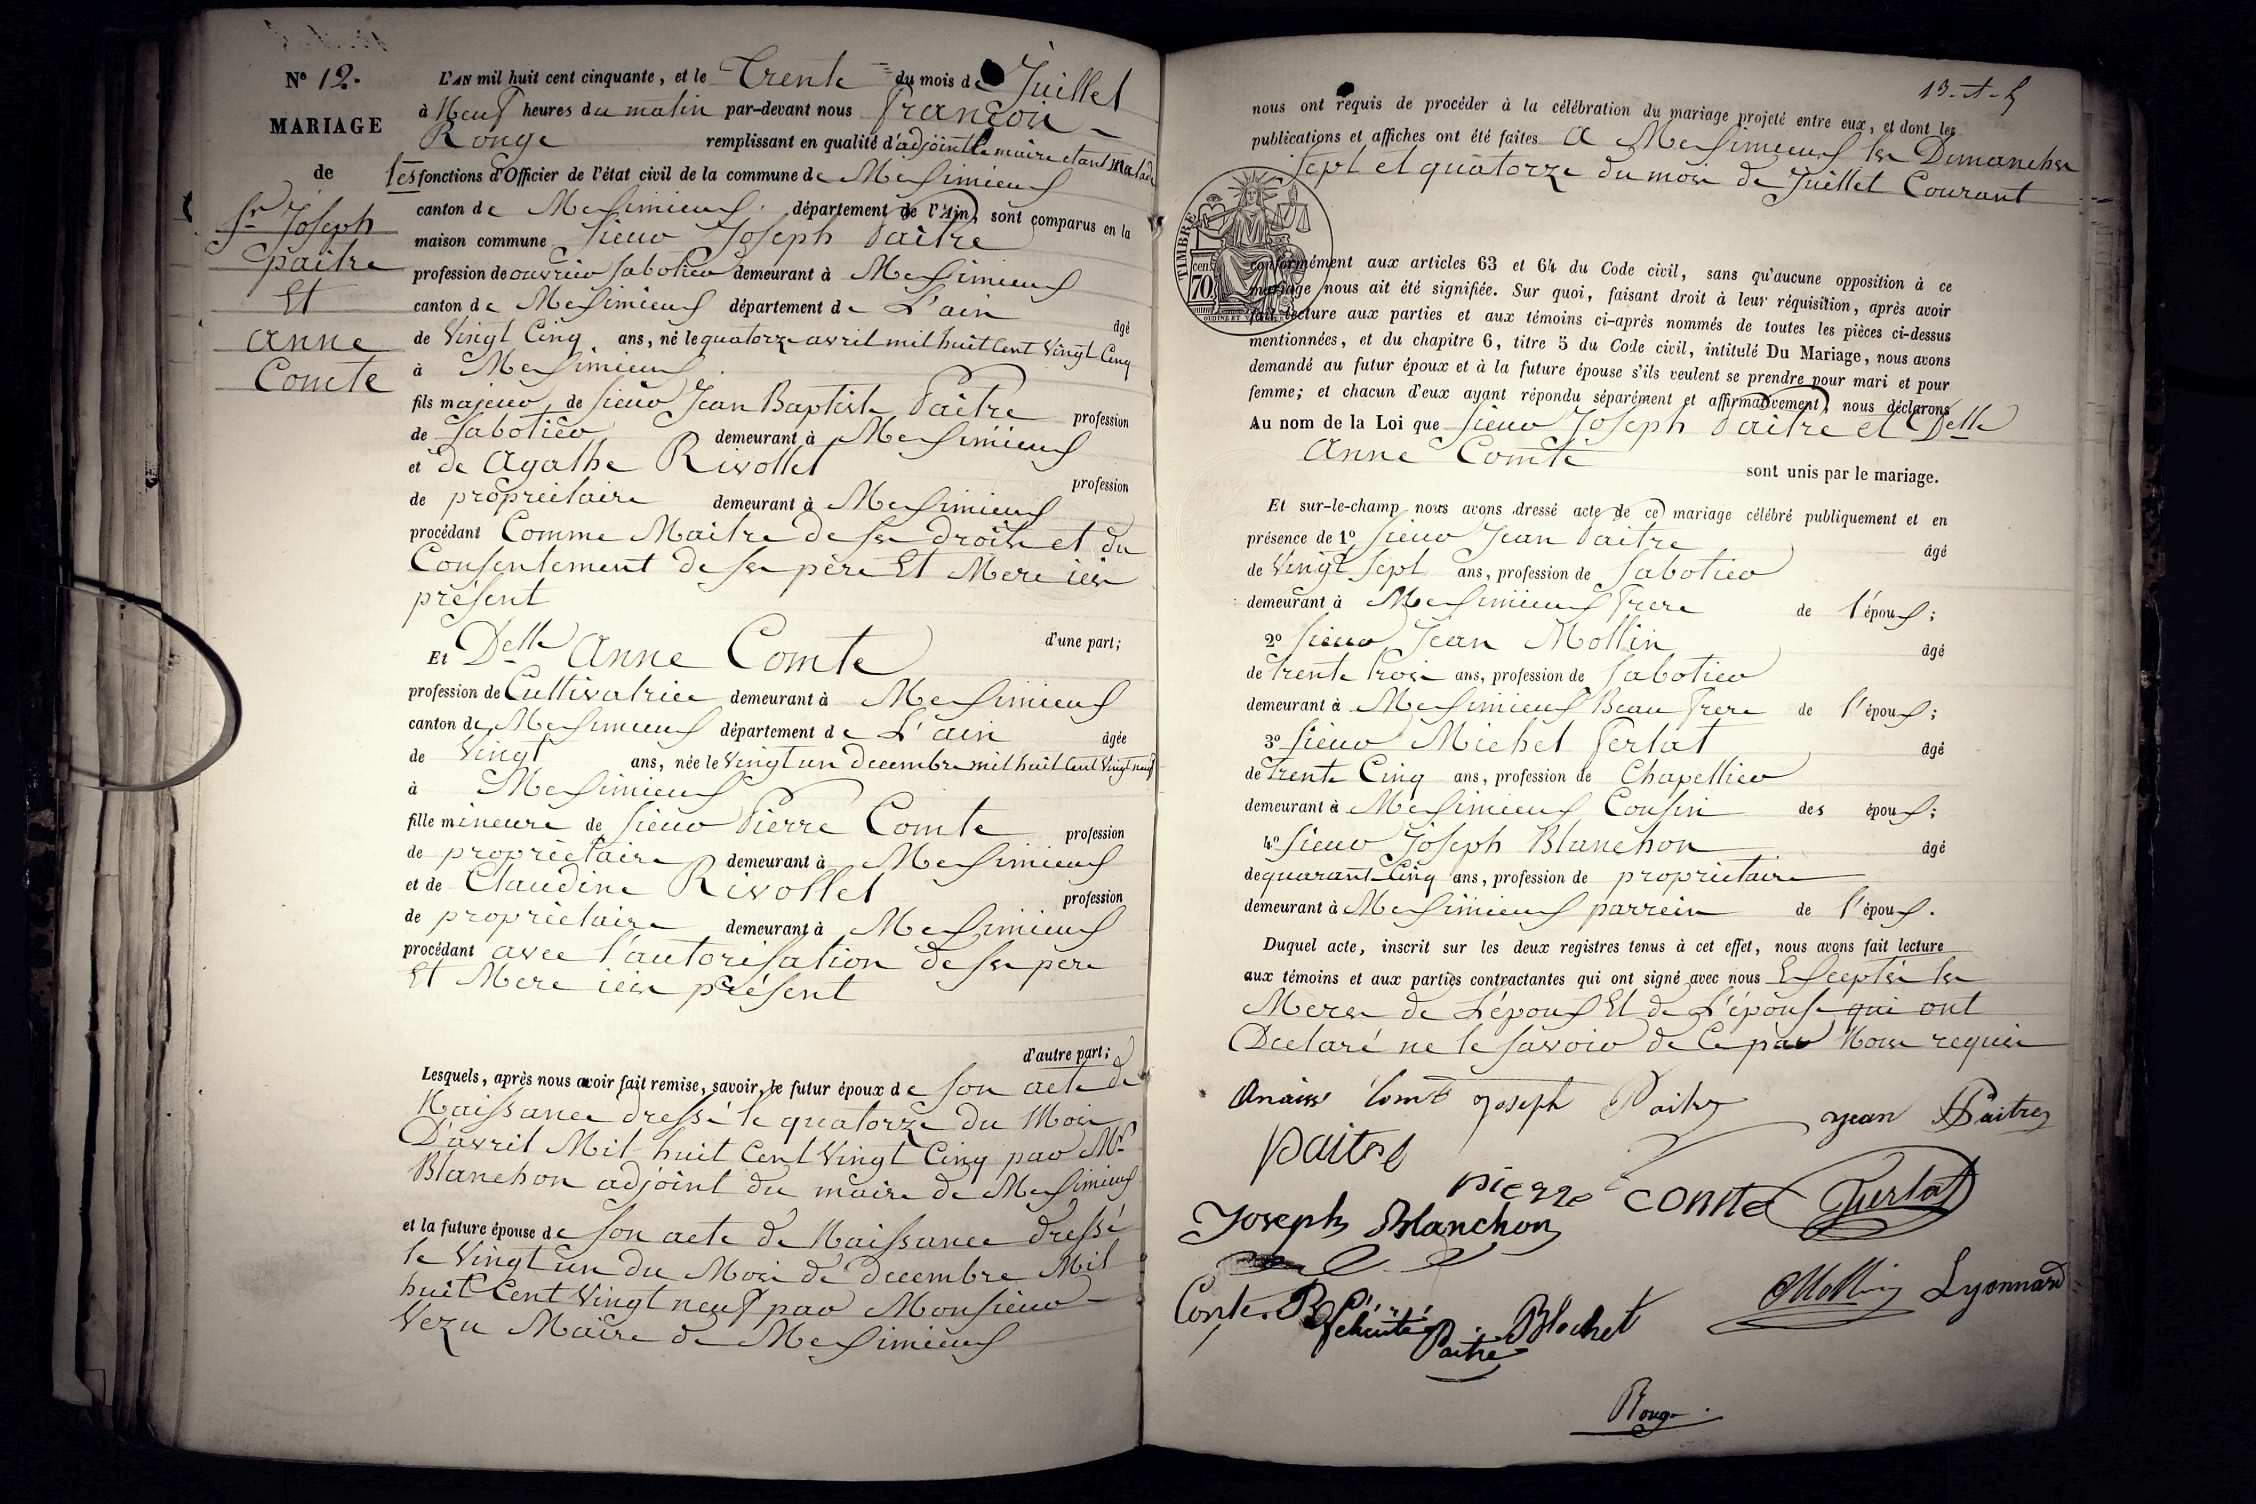 N° 12.
MARIAGE
de
Sr Joseph
paitre
Et
anne
Comte
L'AN mil huit cent cinquante, et le Trente du mois de Juillet
à Neuf heures du matin par-devant nous François
Rouge remplissant en qualité d'adjoint le maire etant malade
les fonctions d'Officier de l'état civil de la commune de Meximieux
canton de Meximieux département de l'Ain, sont comparus en la
maison commune Sieur Joseph Paitre
profession de ouvrier Sabotier demeurant à Meximieux
canton de Meximieux département de L'ain âgé
de Vingt Cinq ans, né le quatorze avril mil huit Cent Vingt Cinq
à Meximieux
fils majeur de Sieur Jean Baptiste Paitre profession
de Sabotier demeurant à Meximieux
et de Agathe Rivollet profession
de propriétaire demeurant à Meximieux
procédant Comme Maitre de ses droits et du
Consentement de ses père Et Mere ici
présent
d'une part;
Et Delle Anne Comte
profession de Cultivatrice demeurant à Meximieux
canton de Meximieux département de L'ain âgée
de Vingt ans, née le Vingt un Decembre mil huit Cent Vingt neuf
à Meximieux
fille mineure de Sieur Pierre Comte profession
de propriétaire demeurant à Meximieux
et de Claudine Rivollet profession
de propriétaire demeurant à Meximieux
procédant avec l'autorisation de ses pere
Et Mere ici présent
d'autre part;
Lesquels, après nous avoir fait remise, savoir, le futur époux de Son acte de
Naissance dressé le quatorze du Mois
D'avril Mil huit Cent Vingt Cinq par Mr
Blanchon adjoint du maire de Meximieux
et la future épouse de Son acte de Naissance dressé
le Vingt un du Mois de Decembre Mil
huit Cent Vingt neuf par Monsieur
Vezu Maire de Meximieux
nous ont requis de procéder à la célébration du mariage projeté entre eux, et dont les
publications et affiches ont été faites A Meximieux les Dimanches
Sept et quatorze du mois de Juillet Courant
TIMBRE
cen.
70
conformément aux articles 63 et 64 du Code civil, sans qu'aucune opposition à ce
mariage nous ait été signifiée. Sur quoi, faisant droit à leur réquisition, après avoir
fait lecture aux parties et aux témoins ci-après nommés de toutes les pièces ci-dessus
mentionnées, et du chapitre 6, titre 5 du Code civil, intitulé Du Mariage, nous avons
demandé au futur époux et à la future épouse s'ils veulent se prendre pour mari et pour
femme; et chacun d'eux ayant répondu séparément et affirmativement, nous déclarons
Au nom de la Loi que Sieur Joseph Paitre et Delle
Anne Comte sont unis par le mariage.
Et sur-le-champ nous avons dressé acte de ce mariage célébré publiquement et en
présence de 1° Sieur Jean Paitre âgé
de Vingt Sept ans, profession de Sabotier
demeurant à Meximieux Frere de l'époux;
2° Sieur Jean Mollin âgé
de Trente trois ans, profession de Sabotier
demeurant à Meximieux Beau Frere de l'époux;
3° Sieur Michel Ferlat âgé
de Trente Cinq ans, profession de Chapellier
demeurant à Meximieux Cousin des époux;
4° Sieur Joseph Blanchon âgé
de quarant Cinq ans, profession de propriétaire
demeurant à Meximieux parrein de l'époux.
Duquel acte, inscrit sur les deux registres tenus à cet effet, nous avons fait lecture
aux témoins et aux parties contractantes qui ont signé avec nous Exceptés les
Meres de L'époux Et de L'épouse qui ont
Declaré ne le savoir de Ce par Nous requis
Anaïs Comt Joseph Paitre Jean Paitre
paitre
pierre comte Ferlat
Joseph Blanchon
Conte. Félicité Paitre Blochet Mollin Lyonnard
Rouge